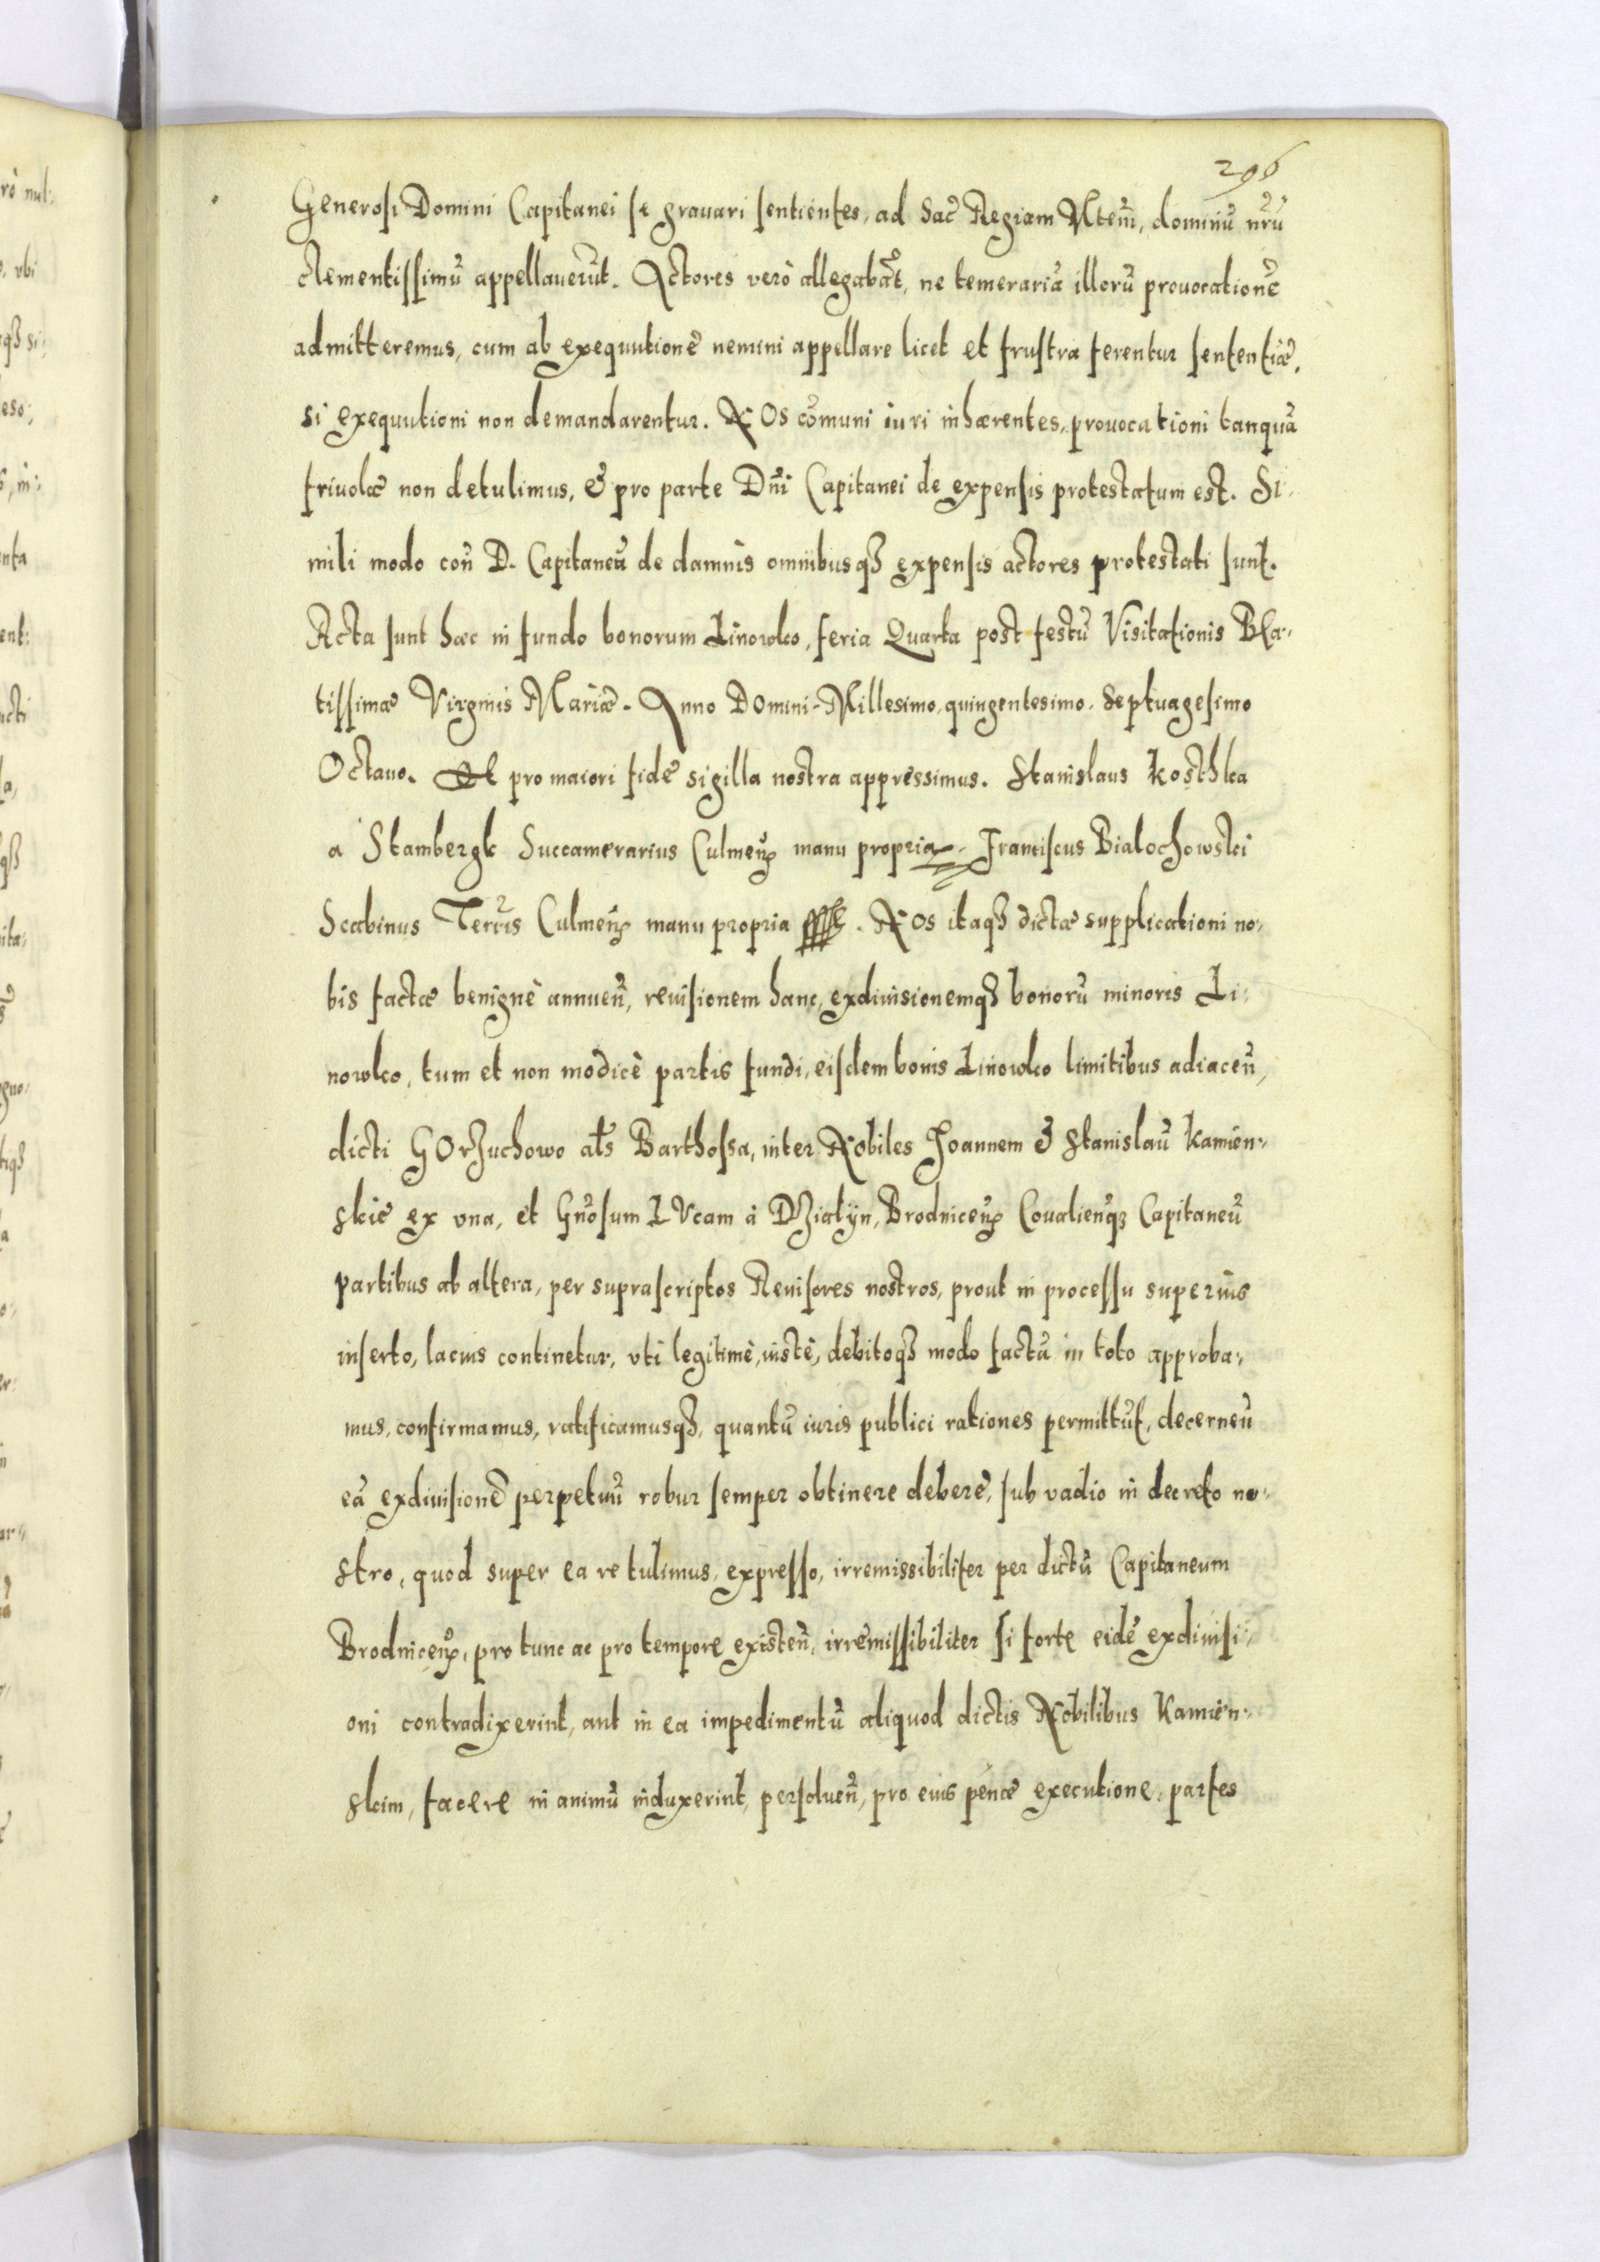 296
Generosi Domini Capitanei se grauari sentientes, ad Sac̃ Regiam Mtem̃, dominũ nr̃ũ
clementissimũ appellauerũt. Actores verò allegabãt, ne temerariã illorũ prouocationẽ
admitteremus, cum ab exequutionẽ nemini appellare licet et frustra ferentur sententiæ,
si exequutioni non demandarentur. NOs cõmuni iuri inhærentes, prouocationi tanquã
friuolæ non detulimus, & pro parte Dñi Capitanei de expensis protestatum est. Si-
mili modo coñ D. Capitaneũ de damnis omnibusqȝ expensis actores protestati sunt.
Acta sunt hæc in fundo bonorum Linowko, feria Quarta post festũ Visitationis Bea-
tissimæ Virginis Mariæ. Anno Domini Millesimo, quingentesimo, Septuagesimo
Octauo. Et pro maiori fide sigilla nostra appressimus. Stanislaus Kosthka
a Stambergk Succamerarius Culmeñ manu propria. Franciscus Bialochowski
Scabinus Terr̃is Culmeñ manu propria. NOs itaqȝ dictæ supplicationi no-
bis factæ benignè annueñ, reuisionem hanc, exdiuisionemqȝ bonorũ minoris Li-
nowko, tum et non modicè partis fundi, eisdem bonis Linowko limitibus adiaceñ,
dicti GOrzuchowo alꝭs Barthossa, inter Nobiles Joannem & Stanislaũ Kamien-
skie ex vna, et Gñosum LVcam à Dzialÿn, Brodniceñ Coualieñqȝ Capitaneũ
partibus ab altera, per suprascriptos Reuisores nostros, prout in processu superius
inserto, lacius continetur, vti legitimè, iustè, debitoqȝ modo factũ in toto approba-
mus, confirmamus, ratificamusqȝ, quantũ iuris publici rationes permittũt, decerneñ
eã exdiuisionẽ perpetuũ robur semper obtinere debere, sub vadio in decreto no-
stro, quod super ea re tulimus, expresso, irremissibiliter per dictũ Capitaneum
Brodniceñ, pro tunc ac pro tempore existeñ, irremissibiliter si forte eidẽ exdiuisi-
oni contradixerint, aut in ea impedimentũ aliquod dictis Nobilibus Kamien-
skim, facere in animũ induxerint, persolueñ, pro cuius pẽnæ executione, partes